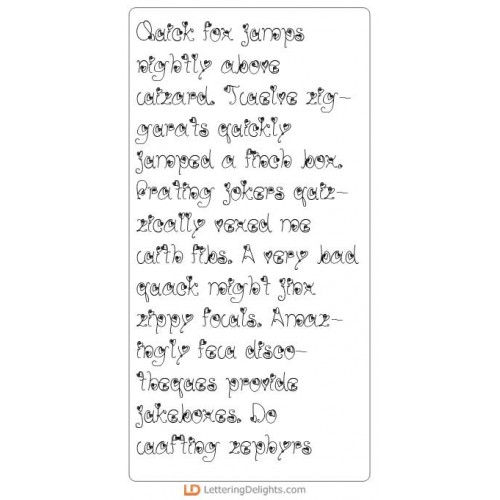 Quick fox jumps
nightly above
wizard. Twelve zig-
gurats quickly
jumped a finch box.
Prating jokers quiz-
zically vexed me
with fibs. A very bad
quack might jinx
zippy fowls. Amaz-
ingly few disco-
theques provide
jukeboxes. Do
wafting zephyrs
LD LetteringDelights.com